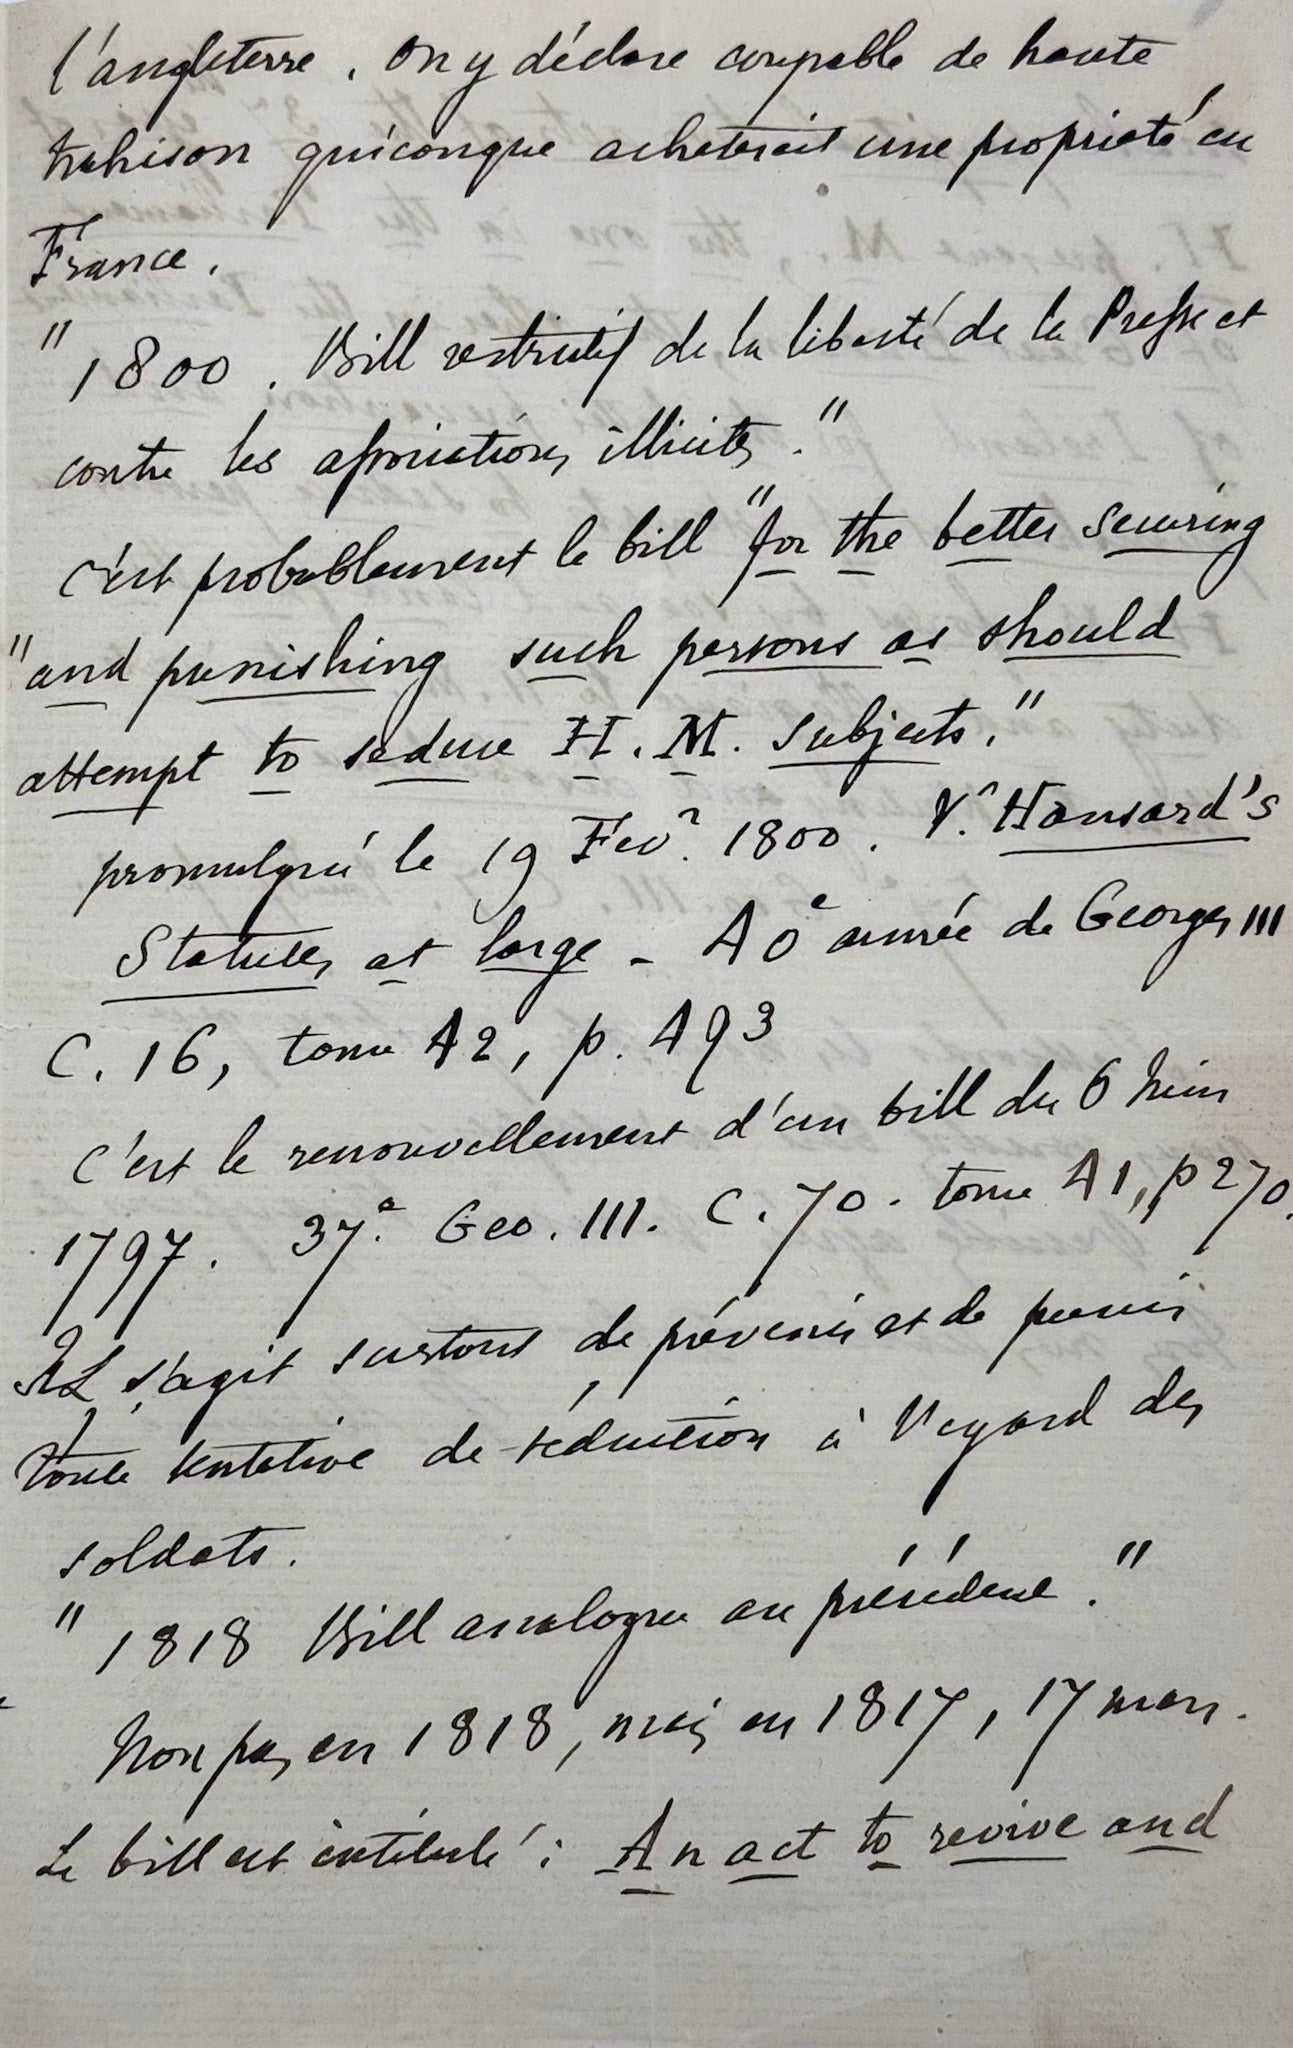 l'angleterre. On y déclare coupable de haute
trahison quiconque acheterait une propriété en
France.
" 1800. Bill restrictif de la liberté de la Presse et
contre les associations illicites."
C'est probablement le bill "for the better securing
"and punishing such persons as should
attempt to seduce H. M. subjects."
promulgué le 19 Fevr. 1800. Vr. Hansard's
Statutes at large - 40e année de Georges III
C. 16, tome 42, p. 493
C'est le renouvellement d'un bill du 6 Juin
1797. 37e. Geo. III. C. 70. tome 41, p 270.
Il s'agit surtout de prévenir et de punir
toute tentative de séduction à l'égard des
soldats.
" 1818 Bill analogue au précédent."
Non pas en 1818, mais en 1817, 17 mars.
Le bill est intitulé : An act to revive and